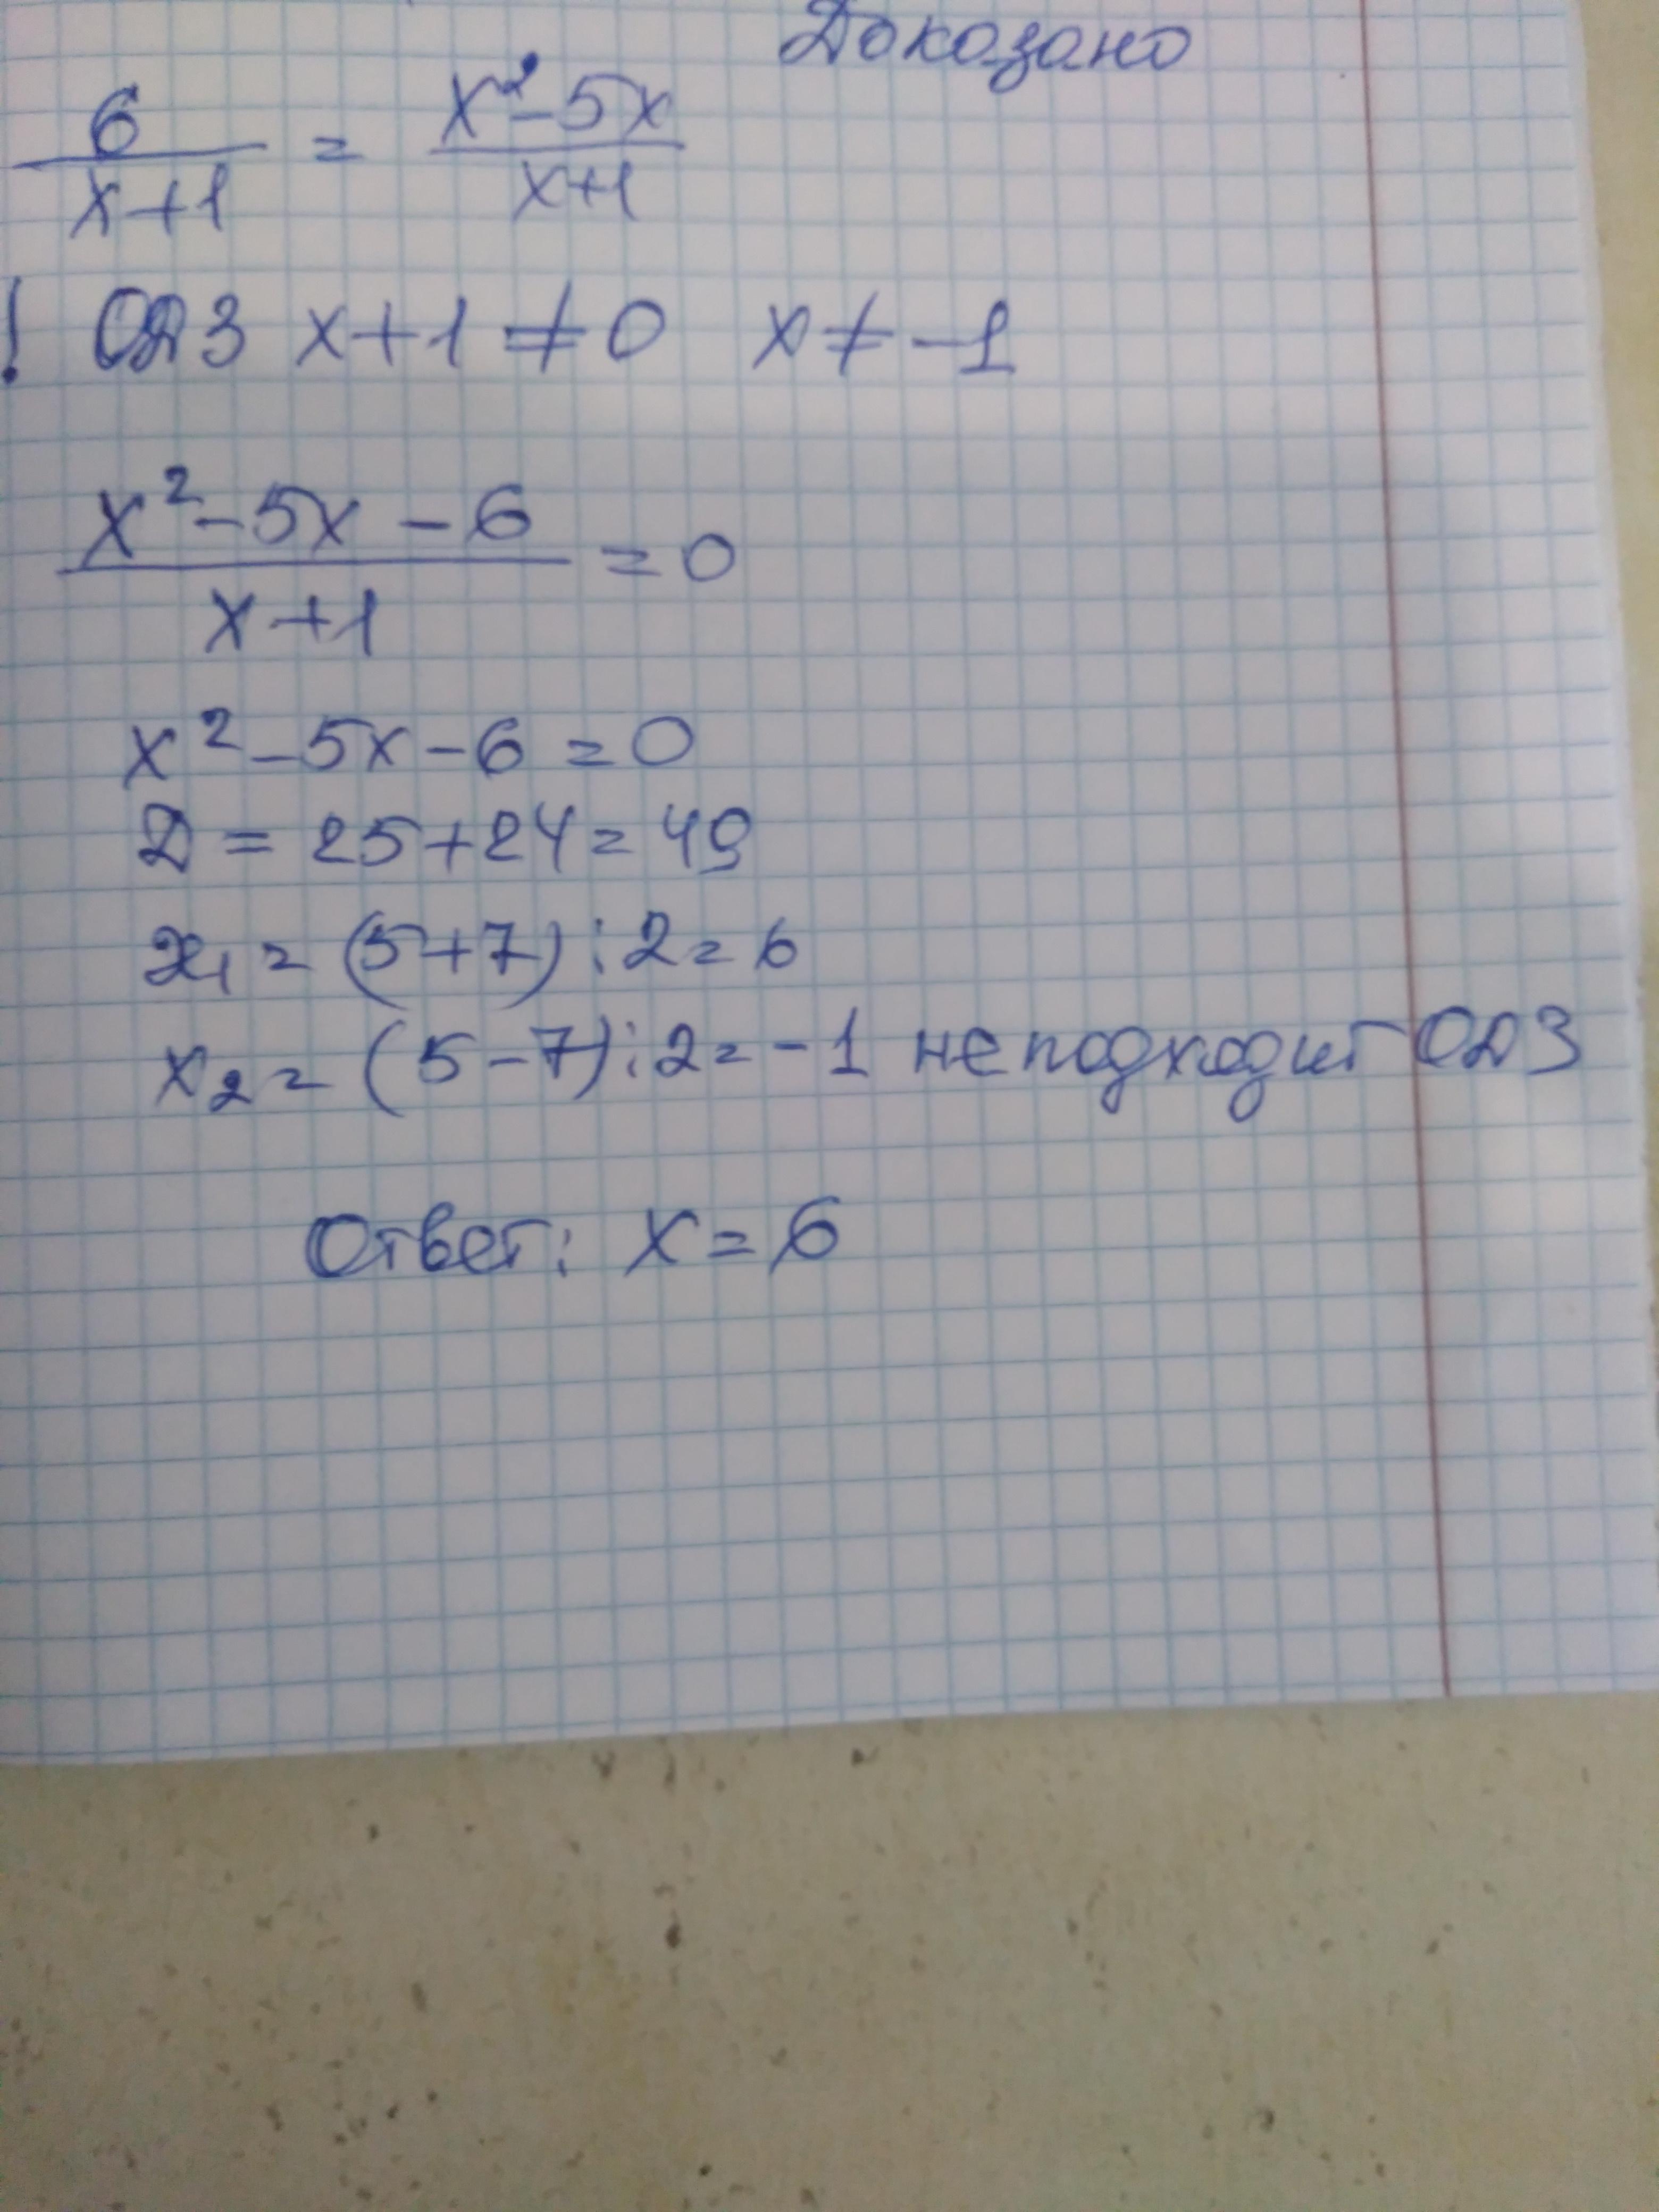 Доказано
6/(x+1) = (x²-5x)/(x+1)
! ОДЗ x+1≠0 x≠-1
(x²-5x-6)/(x+1) = 0
x²-5x-6=0
D=25+24=49
x₁=(5+7):2=6
x₂=(5-7):2=-1 не подходит ОДЗ
Ответ: x=6